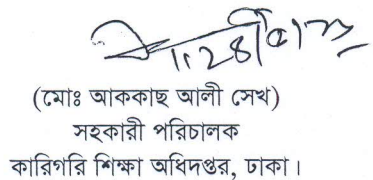 (মোঃ আককাছ আলী সেখ)
সহকারী পরিচালক
কারিগরি শিক্ষা অধিদপ্তর, ঢাকা।